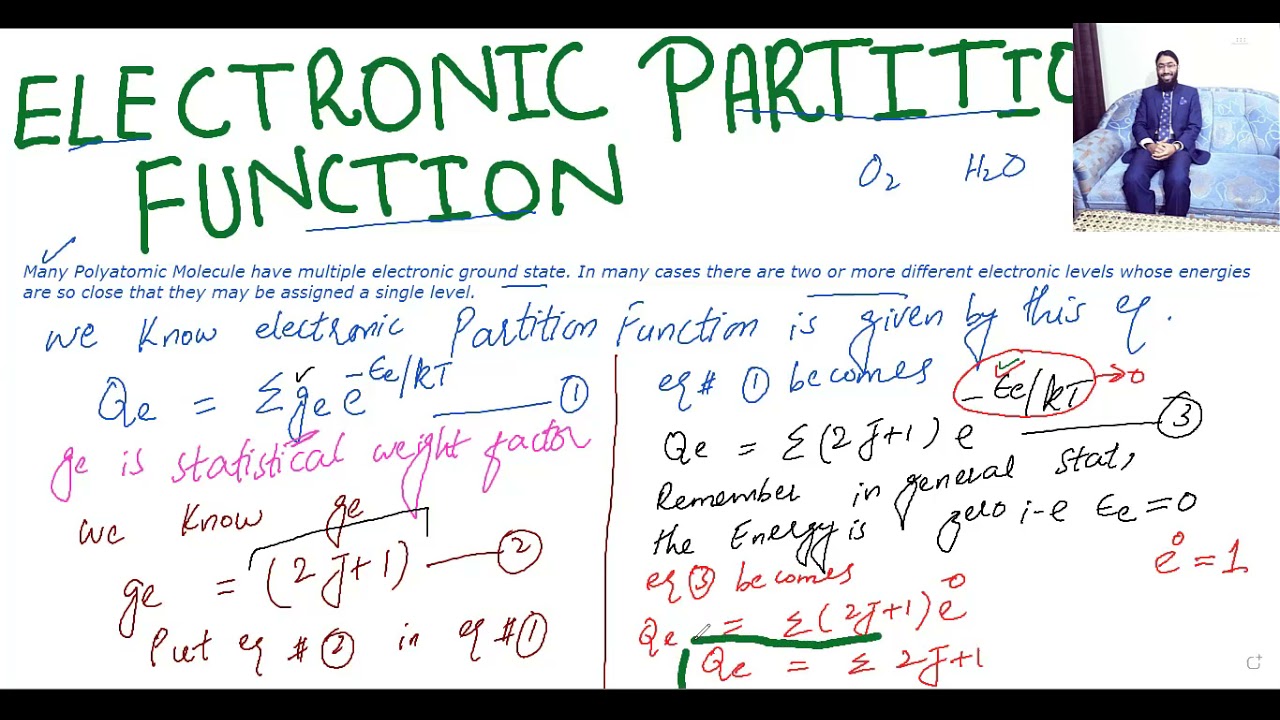 ELECTRONIC PARTITIO
FUNCTION
O₂ H₂O
Many Polyatomic Molecule have multiple electronic ground state. In many cases there are two or more different electronic levels whose energies
are so close that they may be assigned a single level.
we know electronic Partition Function is given by this eq.
Qe = Σ ge e^-Ee/kT ①
ge is statistical weight factor
we know ge
ge = (2J+1) ②
Put eq # ② in eq # ①
eq # ① becomes
Qe = Σ(2J+1) e^-Ee/kT → 0 ③
Remember in general stat,
the Energy is zero i-e Ee=0
e⁰ = 1
eq ③ becomes
Qe = Σ(2J+1) e^-0
Qe = Σ 2J+1